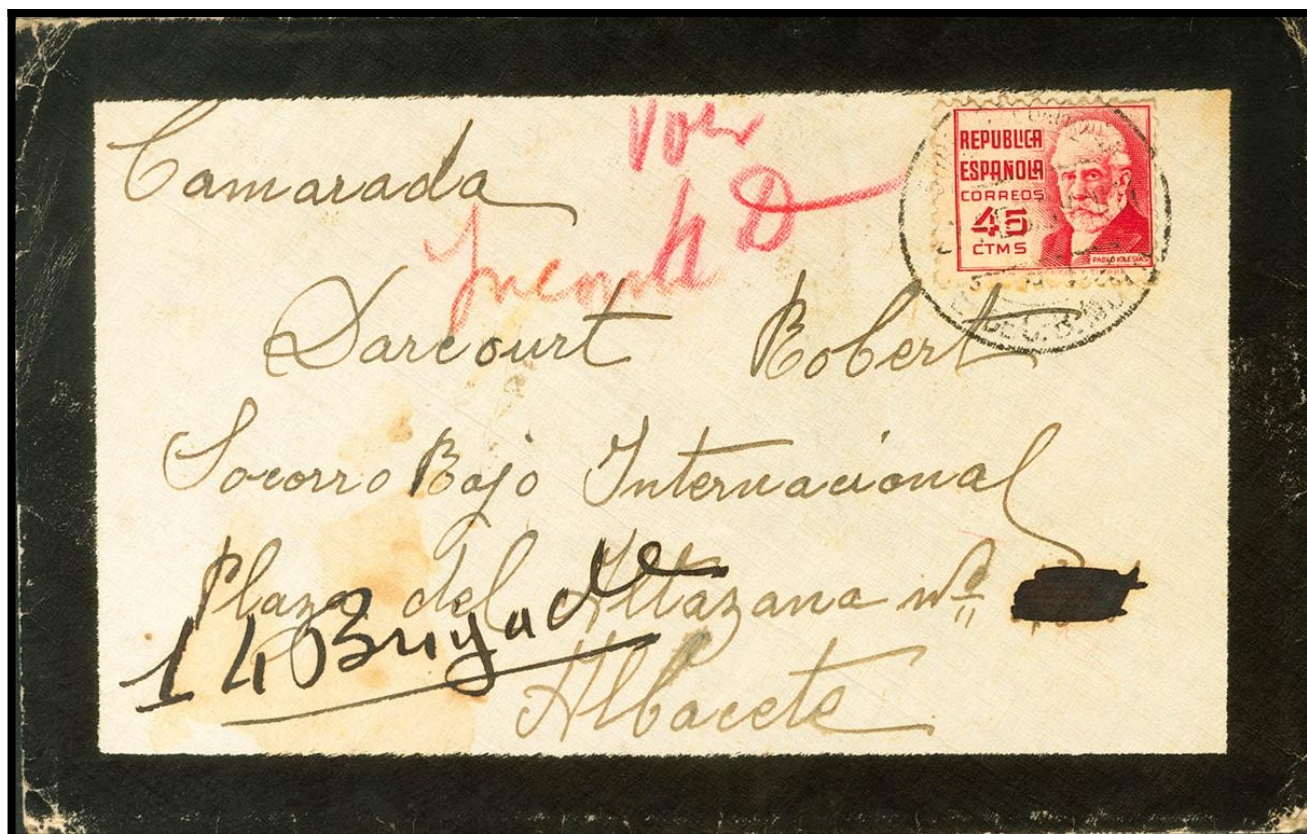 Camarada
Voir
D
REPUBLICA
ESPAÑOLA
CORREOS
45
CTMS
PABLO IGLESIAS
Darcourt Robert
Socorro Bojo Internacional
Plaza del Altazana nº
14 Brigade
Albacete